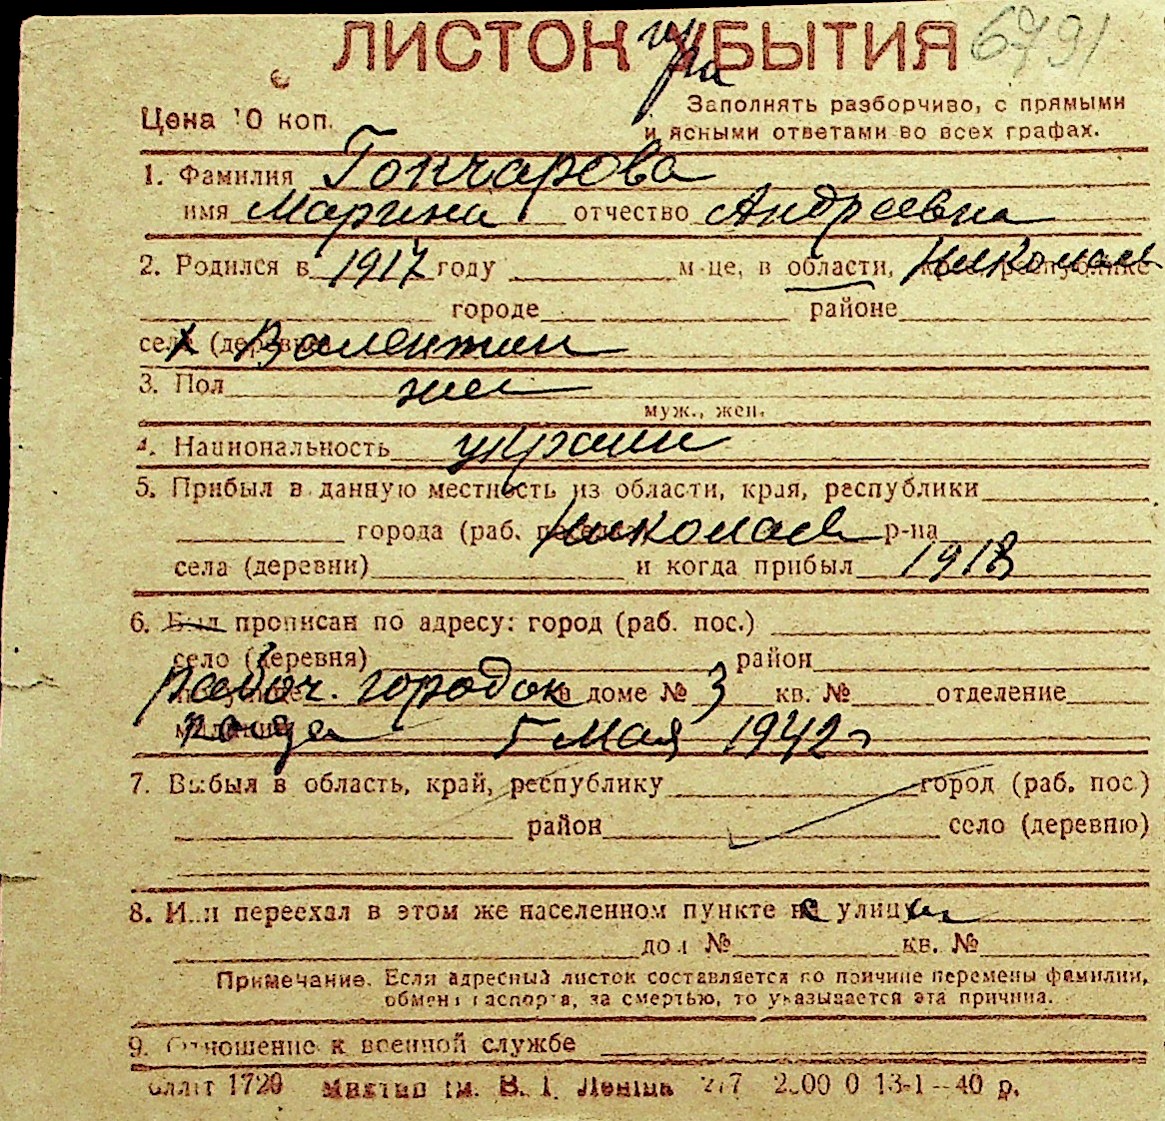 ЛИСТОК УБЫТИЯ 6791
Цена 10 коп. Заполнять разборчиво, с прямыми
и ясными ответами во всех графах.
1. Фамилия Гончарова
имя Марина отчество Андреевна
2. Родился в 1917 году м-це, в области, Николаев
городе районе
села (деревне) Валентин
3. Пол жен
муж., жен.
4. Национальность украин
5. Прибыл в данную местность из области, края, республики
города (раб. Николаев р-на
села (деревни) и когда прибыл 1918
6. Был прописан по адресу: город (раб. пос.)
село (деревня) район
рабоч. городок в доме № 3 кв. № отделение
5 мая 1942 г
7. Выбыл в область, край, республику город (раб. пос.)
район село (деревню)
8. Или переехал в этом же населенном пункте улицу
дом № кв. №
Примечание. Если адресный листок составляется по причине перемены фамилии,
обмена паспорта, за смертью, то указывается эта причина.
9. Отношение к военной службе
1720 им. В. Леніна 13-1-40 р.